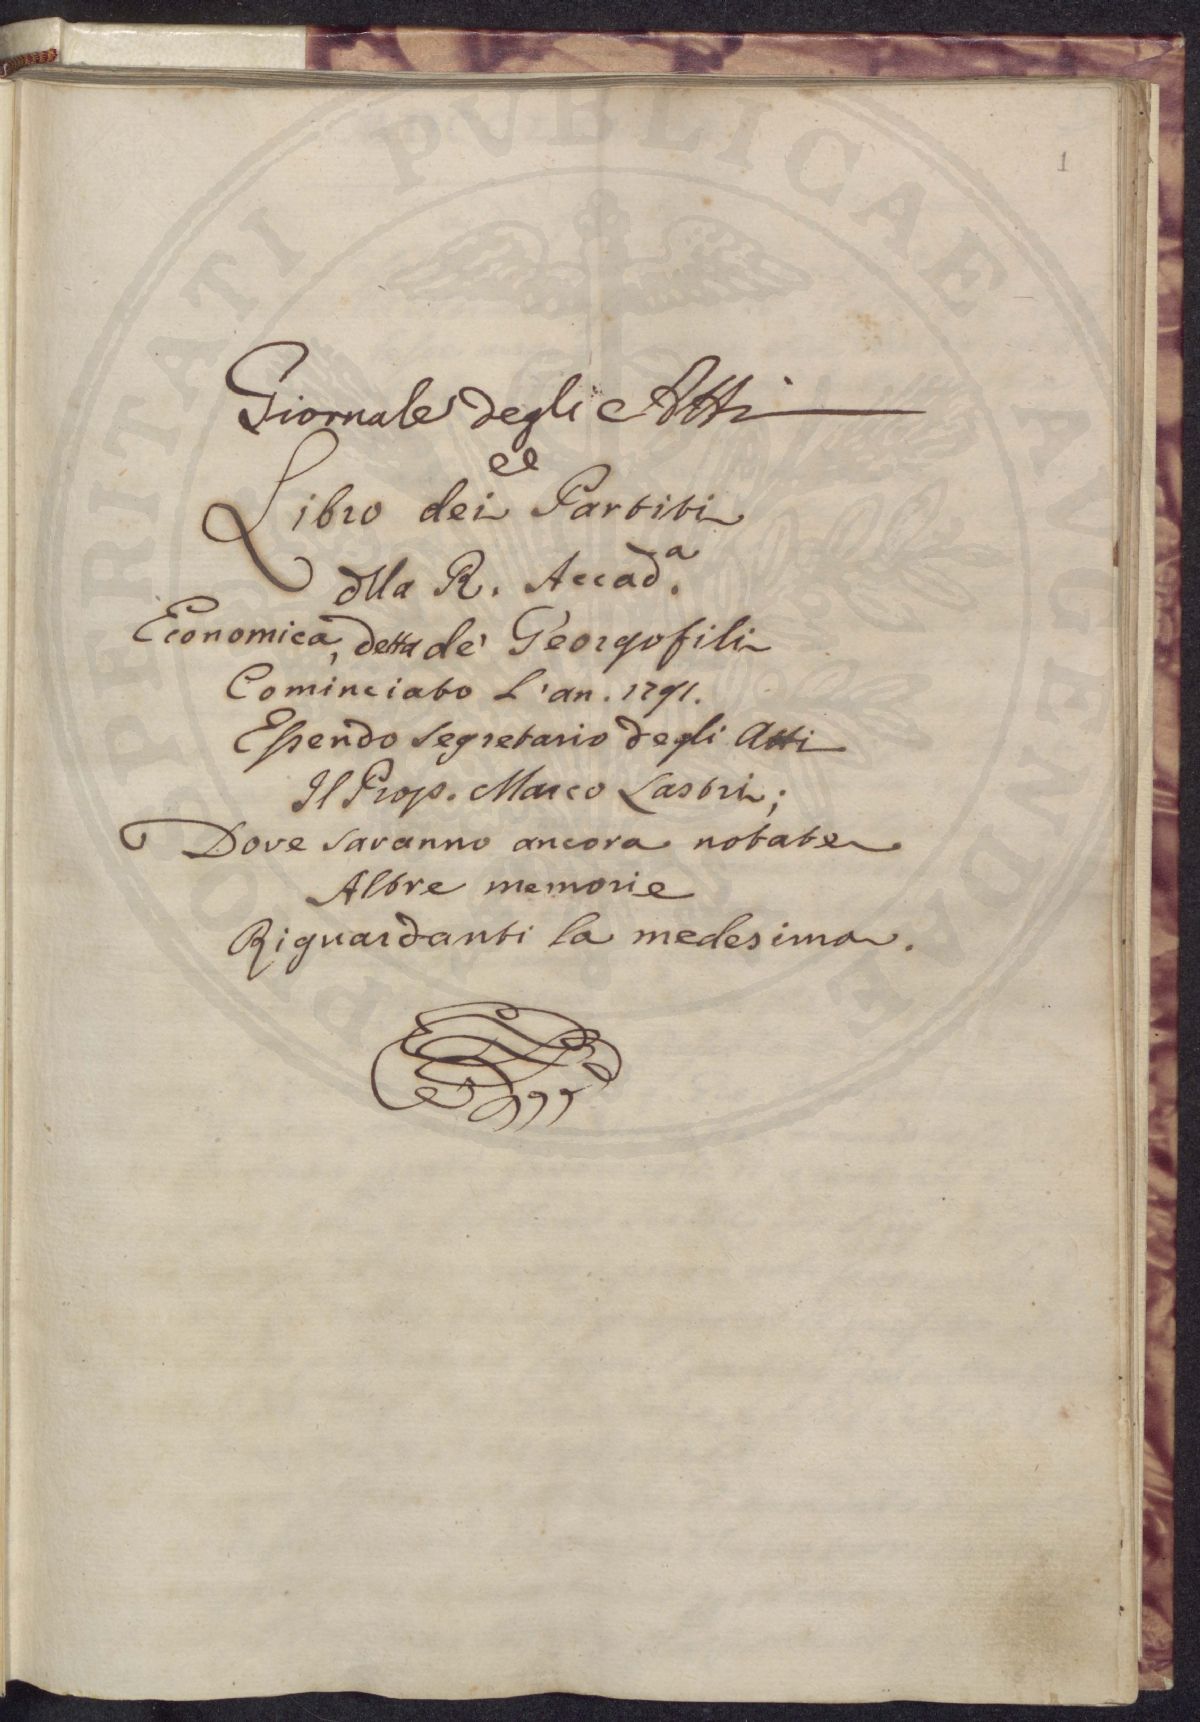 1
Giornale degli Atti
e
Libro dei Partiti
dlla R. Accad.ª
Economica, detta de' Georgofili
Cominciato L'an. 1791.
Essendo Segretario degli Atti
Il Prop. Marco Lastri;
Dove saranno ancora notate
Altre memorie
Riguardanti la medesima.
PROSPERITATI PUBLICAE AUGENDAE